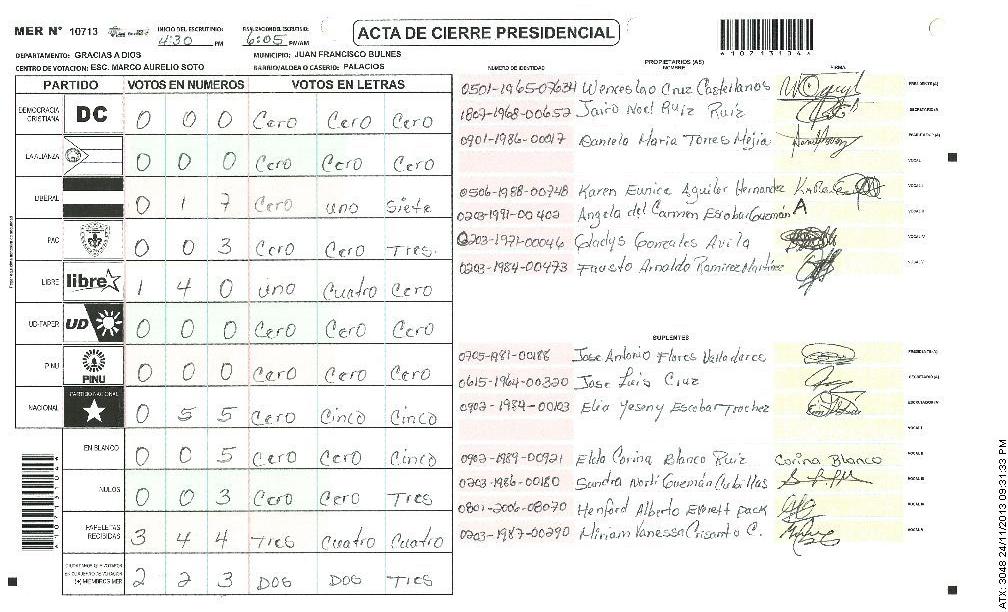 MER N° 10713
INICIO DEL ESCRUTINIO:
4:30 PM
FINALIZACION DEL ESCRUTINIO:
6:05 PM/AM
ACTA DE CIERRE PRESIDENCIAL
41071313044
DEPARTAMENTO: GRACIAS A DIOS
MUNICIPIO: JUAN FRANCISCO BULNES
CENTRO DE VOTACION: ESC. MARCO AURELIO SOTO
BARRIO/ALDEA O CASERIO: PALACIOS
PARTIDO VOTOS EN NUMEROS VOTOS EN LETRAS
DEMOCRACIA CRISTIANA DC 0 0 0 Cero Cero Cero
LA ALIANZA 0 0 0 Cero Cero Cero
LIBERAL 0 1 7 Cero uno Siete
PAC 0 0 3 Cero Cero Tres.
LIBRE libre 1 4 0 uno Cuatro Cero
UD-FAPER UD 0 0 0 Cero Cero Cero
PINU PINU 0 0 0 Cero Cero Cero
NACIONAL PARTIDO NACIONAL 0 5 5 Cero Cinco Cinco
EN BLANCO 0 0 5 Cero Cero Cinco
NULOS 0 0 3 Cero Cero Tres
PAPELETAS RECIBIDAS 3 4 4 Tres Cuatro Cuatro
CIUDADANOS QUE VOTARON EN CUADERNO DE VOTACION (+) MIEMBROS MER 2 2 3 DOS DOS Tres
PROPIETARIOS (AS)
NUMERO DE IDENTIDAD NOMBRE FIRMA
0501-1965-07634 Wenceslao Cruz Castellanos PRESIDENTE(A)
1807-1968-00652 Jairo Noel Ruiz Ruiz SECRETARIO(A)
0901-1986-00017 Daniela Maria Torres Mejia ESCRUTADOR(A)
VOCAL I
0506-1988-00748 Karen Eunice Aguilar Hernandez VOCAL II
0203-1991-00402 Angela del Carmen Escobar Guzmán A VOCAL III
0203-1971-00046 Gladys Gonzales Avila VOCAL IV
0203-1984-00473 Fausto Arnaldo Ramirez Martinez VOCAL V
SUPLENTES
0705-1981-00188 Jose Antonio Flores Valladares PRESIDENTE(A)
0615-1964-00320 Jose Luis Cruz SECRETARIO(A)
0902-1984-00103 Elia Yeseny Escobar Trochez ESCRUTADOR(A)
VOCAL I
0902-1989-00921 Elda Corina Blanco Ruiz Corina Blanco VOCAL II
0203-1986-00180 Sandra Norli Guzmán Cubillas VOCAL III
0801-2006-08070 Henford Alberto Everett pack VOCAL IV
0203-1987-00290 Miriam Vanessa Crisanto C. VOCAL V
ATX: 3048 24/11/2013 09:31:33 PM